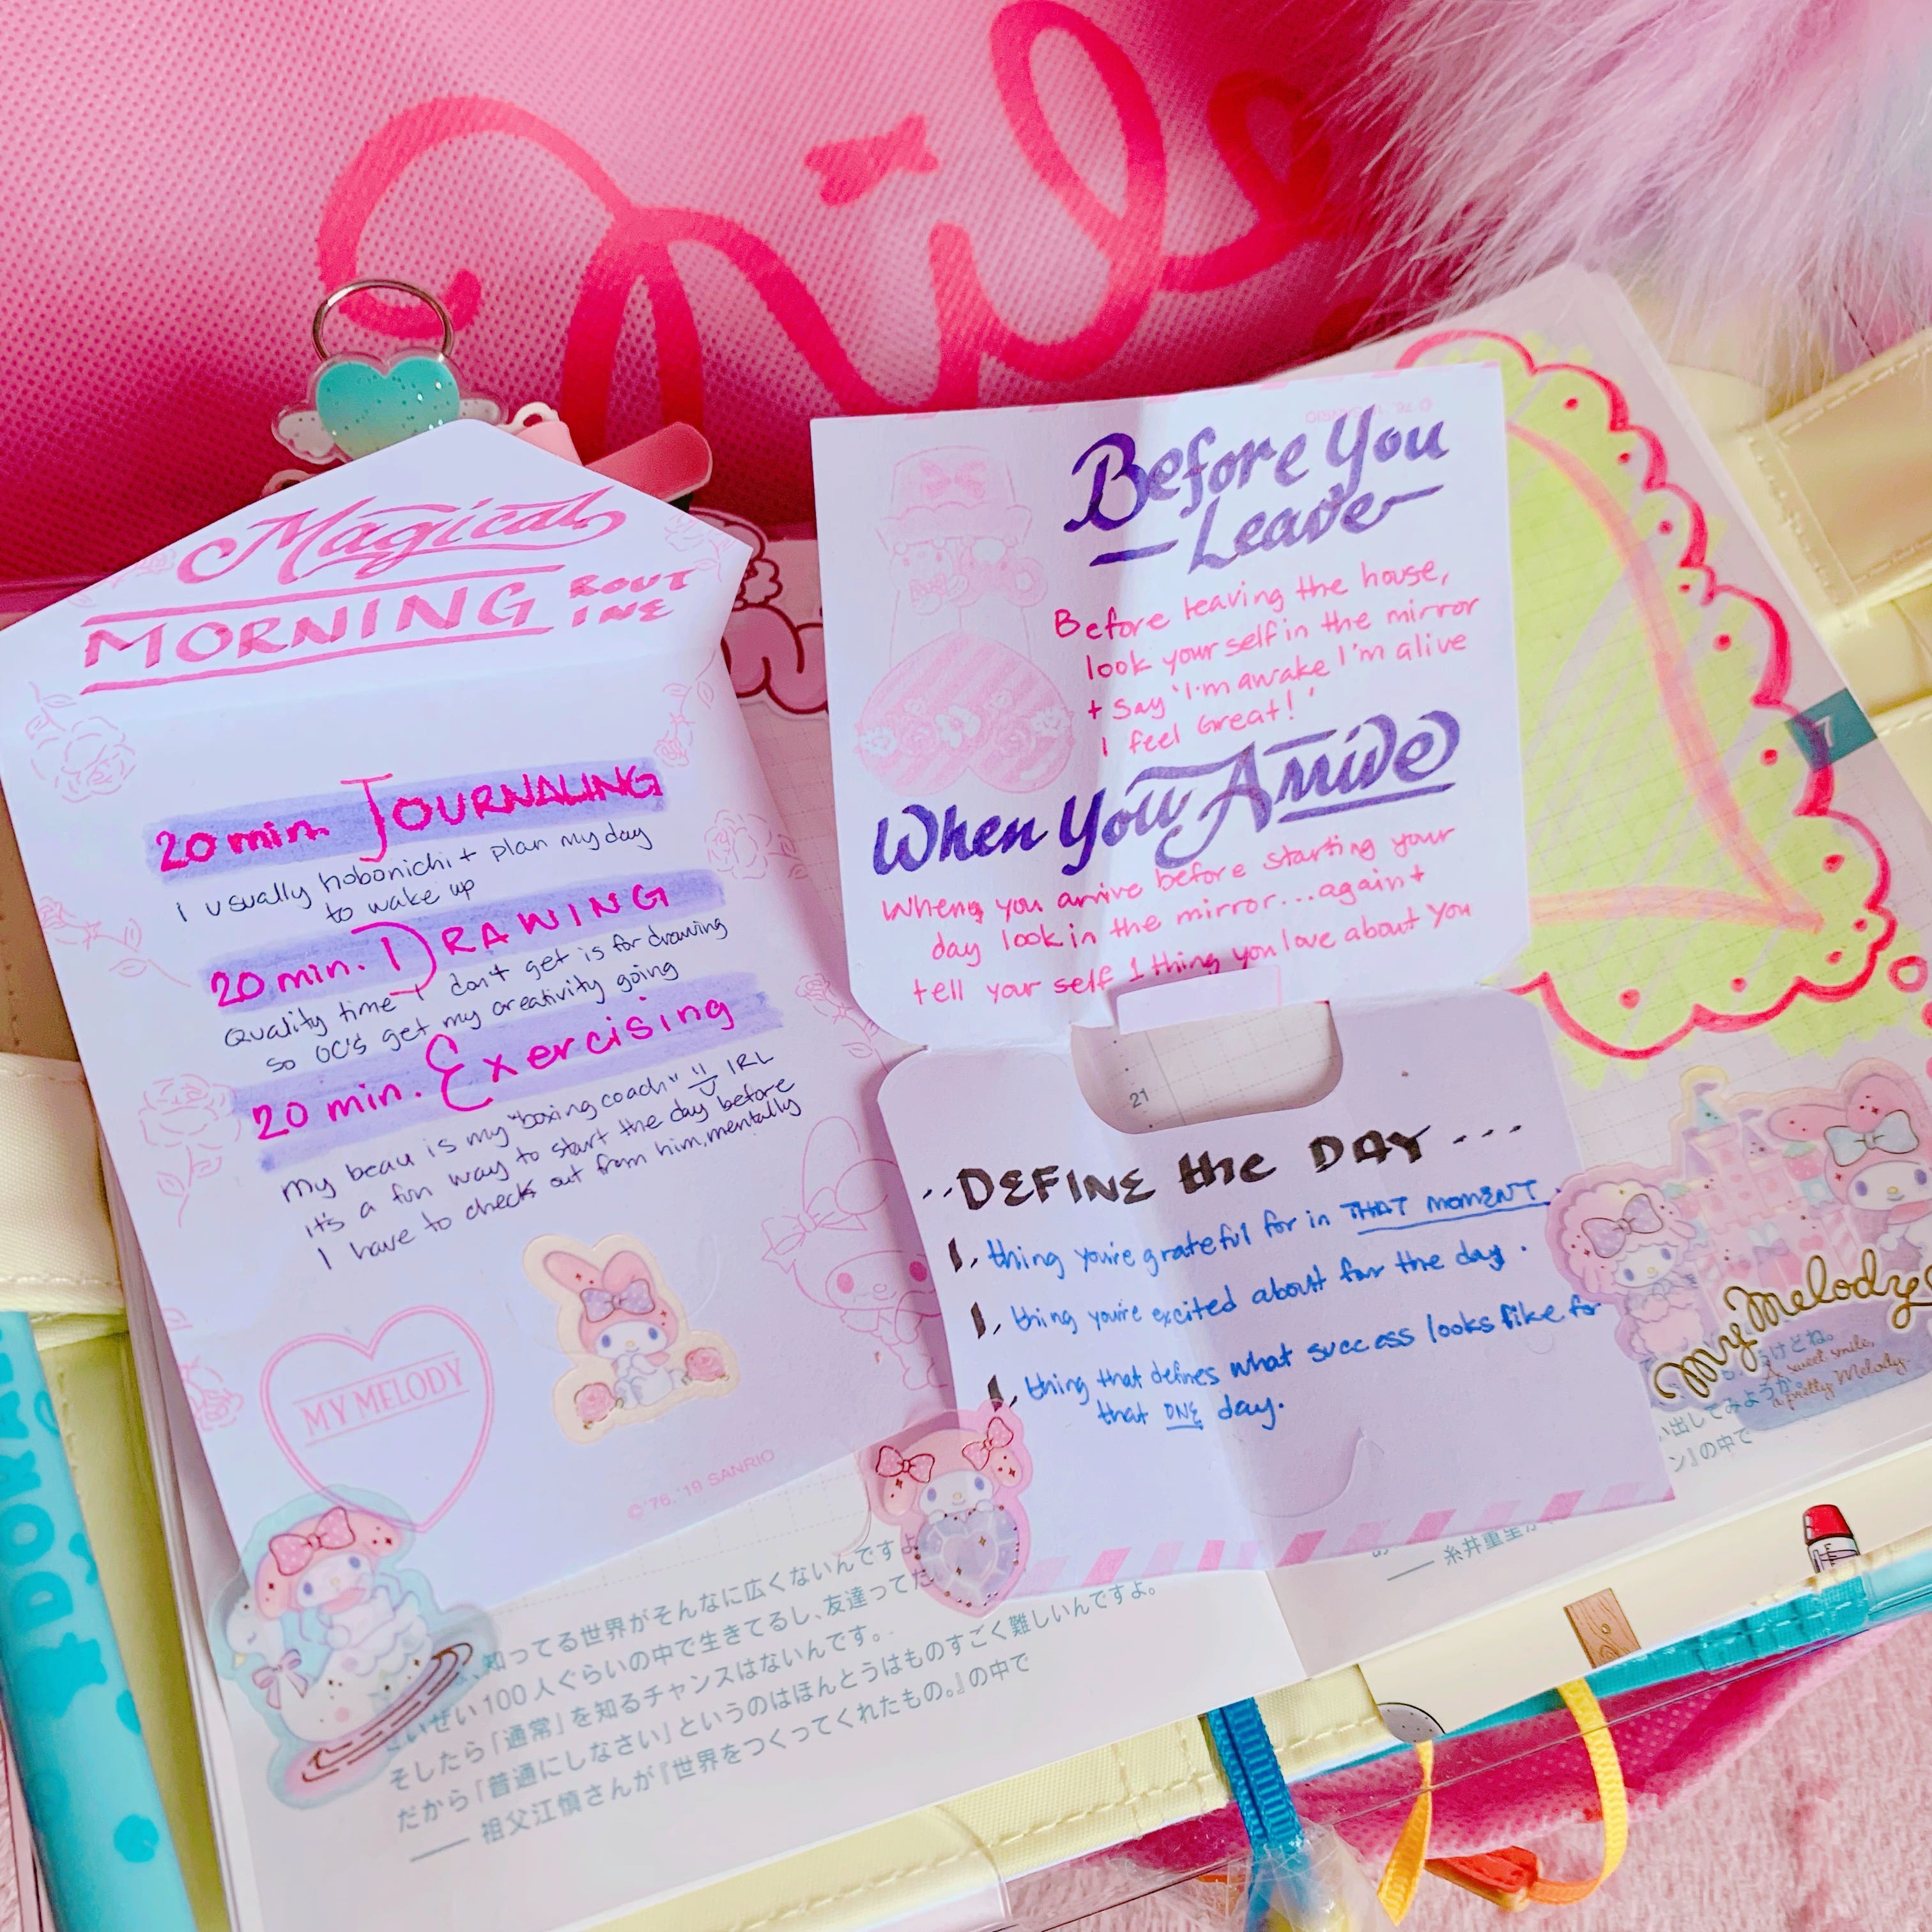 Magical
MORNING ROUT
INE
20 min. JOURNALING
I usually hobonichi + plan my day
to wake up
20 min. DRAWING
Quality time I don't get is for drawing
so OC'S get my creativity going
20 min. Exercising
My beau is my "boxing coach" IRL
it's a fun way to start the day before
I have to check out from him, mentally
MY MELODY
©'76, '19 SANRIO
Before You
Leave
Before leaving the house,
look your self in the mirror
+ Say 'I'm awake I'm alive
I feel Great!'
When You Arrive
When you arrive before starting your
day look in the mirror... again +
tell your self 1 thing you love about you
21
.. DEFINE the DAY ...
1. thing you're grateful for in THAT MOMENT.
1. thing you're excited about for the day.
1. thing that defines what success looks like for
that ONE day.
7
My Melody
a sweet smile,
a pretty Melody.
けどね。
い出してみよう
ン』の中で
── 糸井重里が
知ってる世界がそんなに広くないんですよ
いぜい100人ぐらいの中で生きてるし、友達ってた
そしたら「通常」を知るチャンスはないんです。
だから「普通にしなさい」というのはほんとうはものすごく難しいんですよ。
── 祖父江慎さんが『世界をつくってくれたもの。』の中で